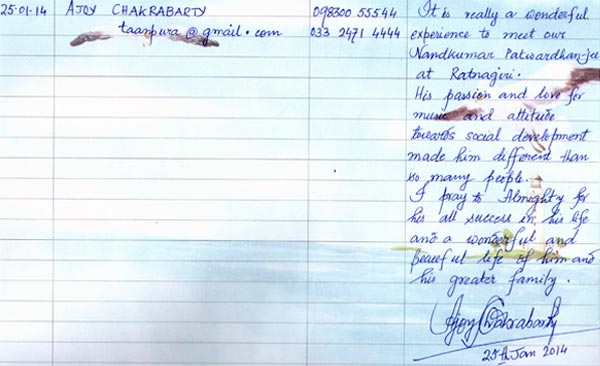 25-01-14 AJOY CHAKRABARTY 098300 55544
taanpura@gmail.com 033 2471 4444
It is really a wonderful
experience to meet our
Nandkumar Patwardhan-jee
at Ratnagiri.
His passion and love for
music and attitude
towards social development
made him different than
so many people.
I pray to Almighty for
his all success in his life
and a wonderful and
peaceful life of him and
his greater family.
Ajoy Chakrabarty
25th Jan 2014